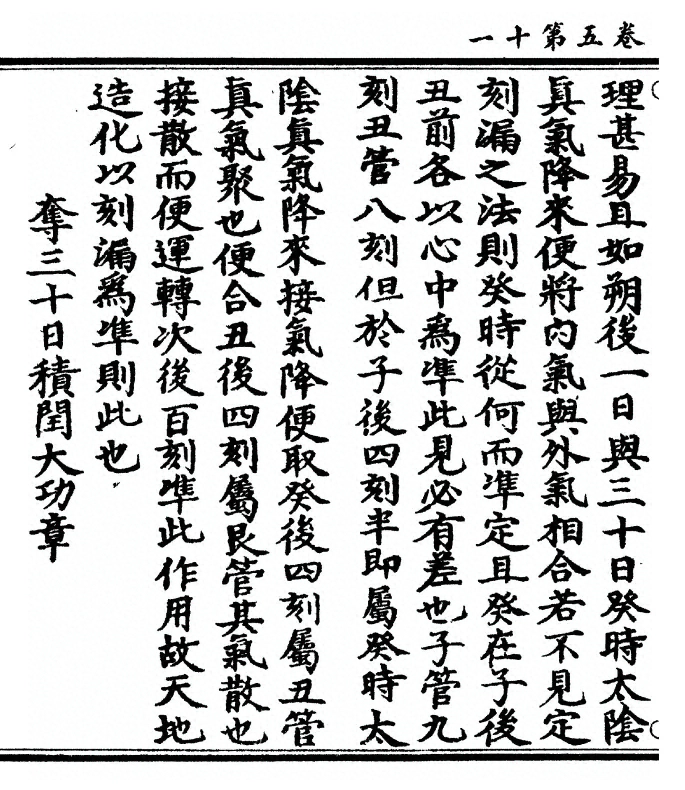 卷五第十一
理甚易且如朔後一日與三十日癸時太陰
真氣降來便將內氣與外氣相合若不見定
刻漏之法則癸時從何而準定且癸在子後
丑前各以心中爲準此見必有差也子管九
刻丑管八刻但於子後四刻半即屬癸時太
陰真氣降來接氣降便取癸後四刻屬丑管
真氣聚也便合丑後四刻屬艮管其氣散也
接散而便運轉次後百刻準此作用故天地
造化以刻漏爲準則此也
奪三十日積閏大功章